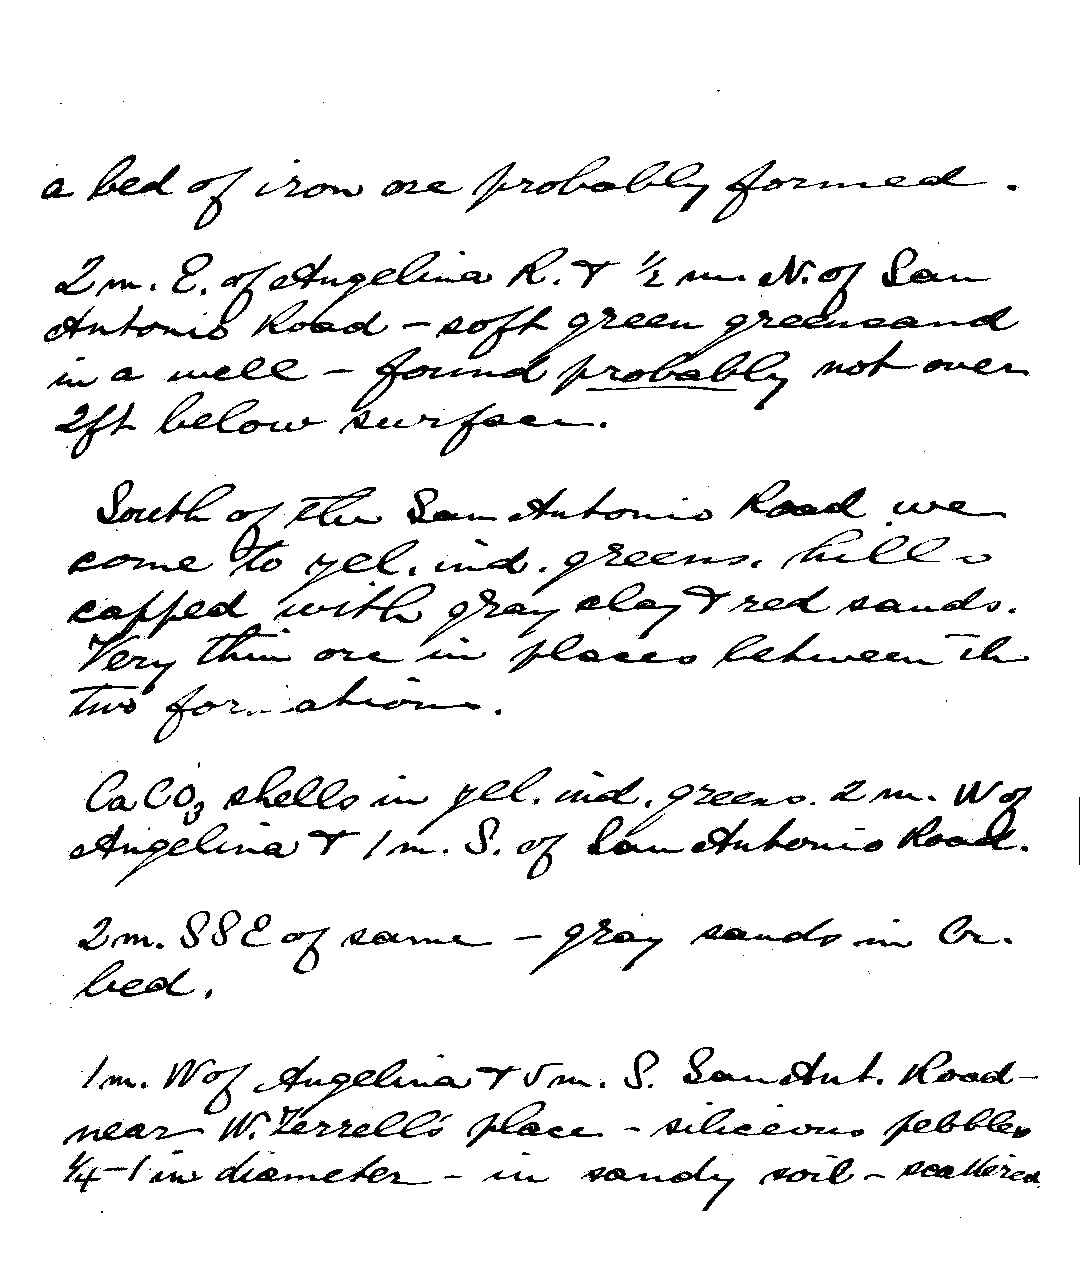 a bed of iron ore probably formed.
2 m. E. of Angelina R. & 1/2 m. N. of San
Antonio Road - soft green greensand
in a well - found probably not over
2ft below surface.
South of the San Antonio Road we
come to yel. ind. greens. hills
capped with gray clay & red sands.
Very thin ore in places between the
two formations.
CaCO3 shells in yel. ind. greens. 2 m. W of
Angelina & 1 m. S. of San Antonio Road.
2 m. SSE of same - gray sands in Cr.
bed.
1 m. W of Angelina & 5 m. S. San Ant. Road -
near W. Terrell's place - siliceous pebbles
1/4-1 in diameter - in sandy soil - scattered